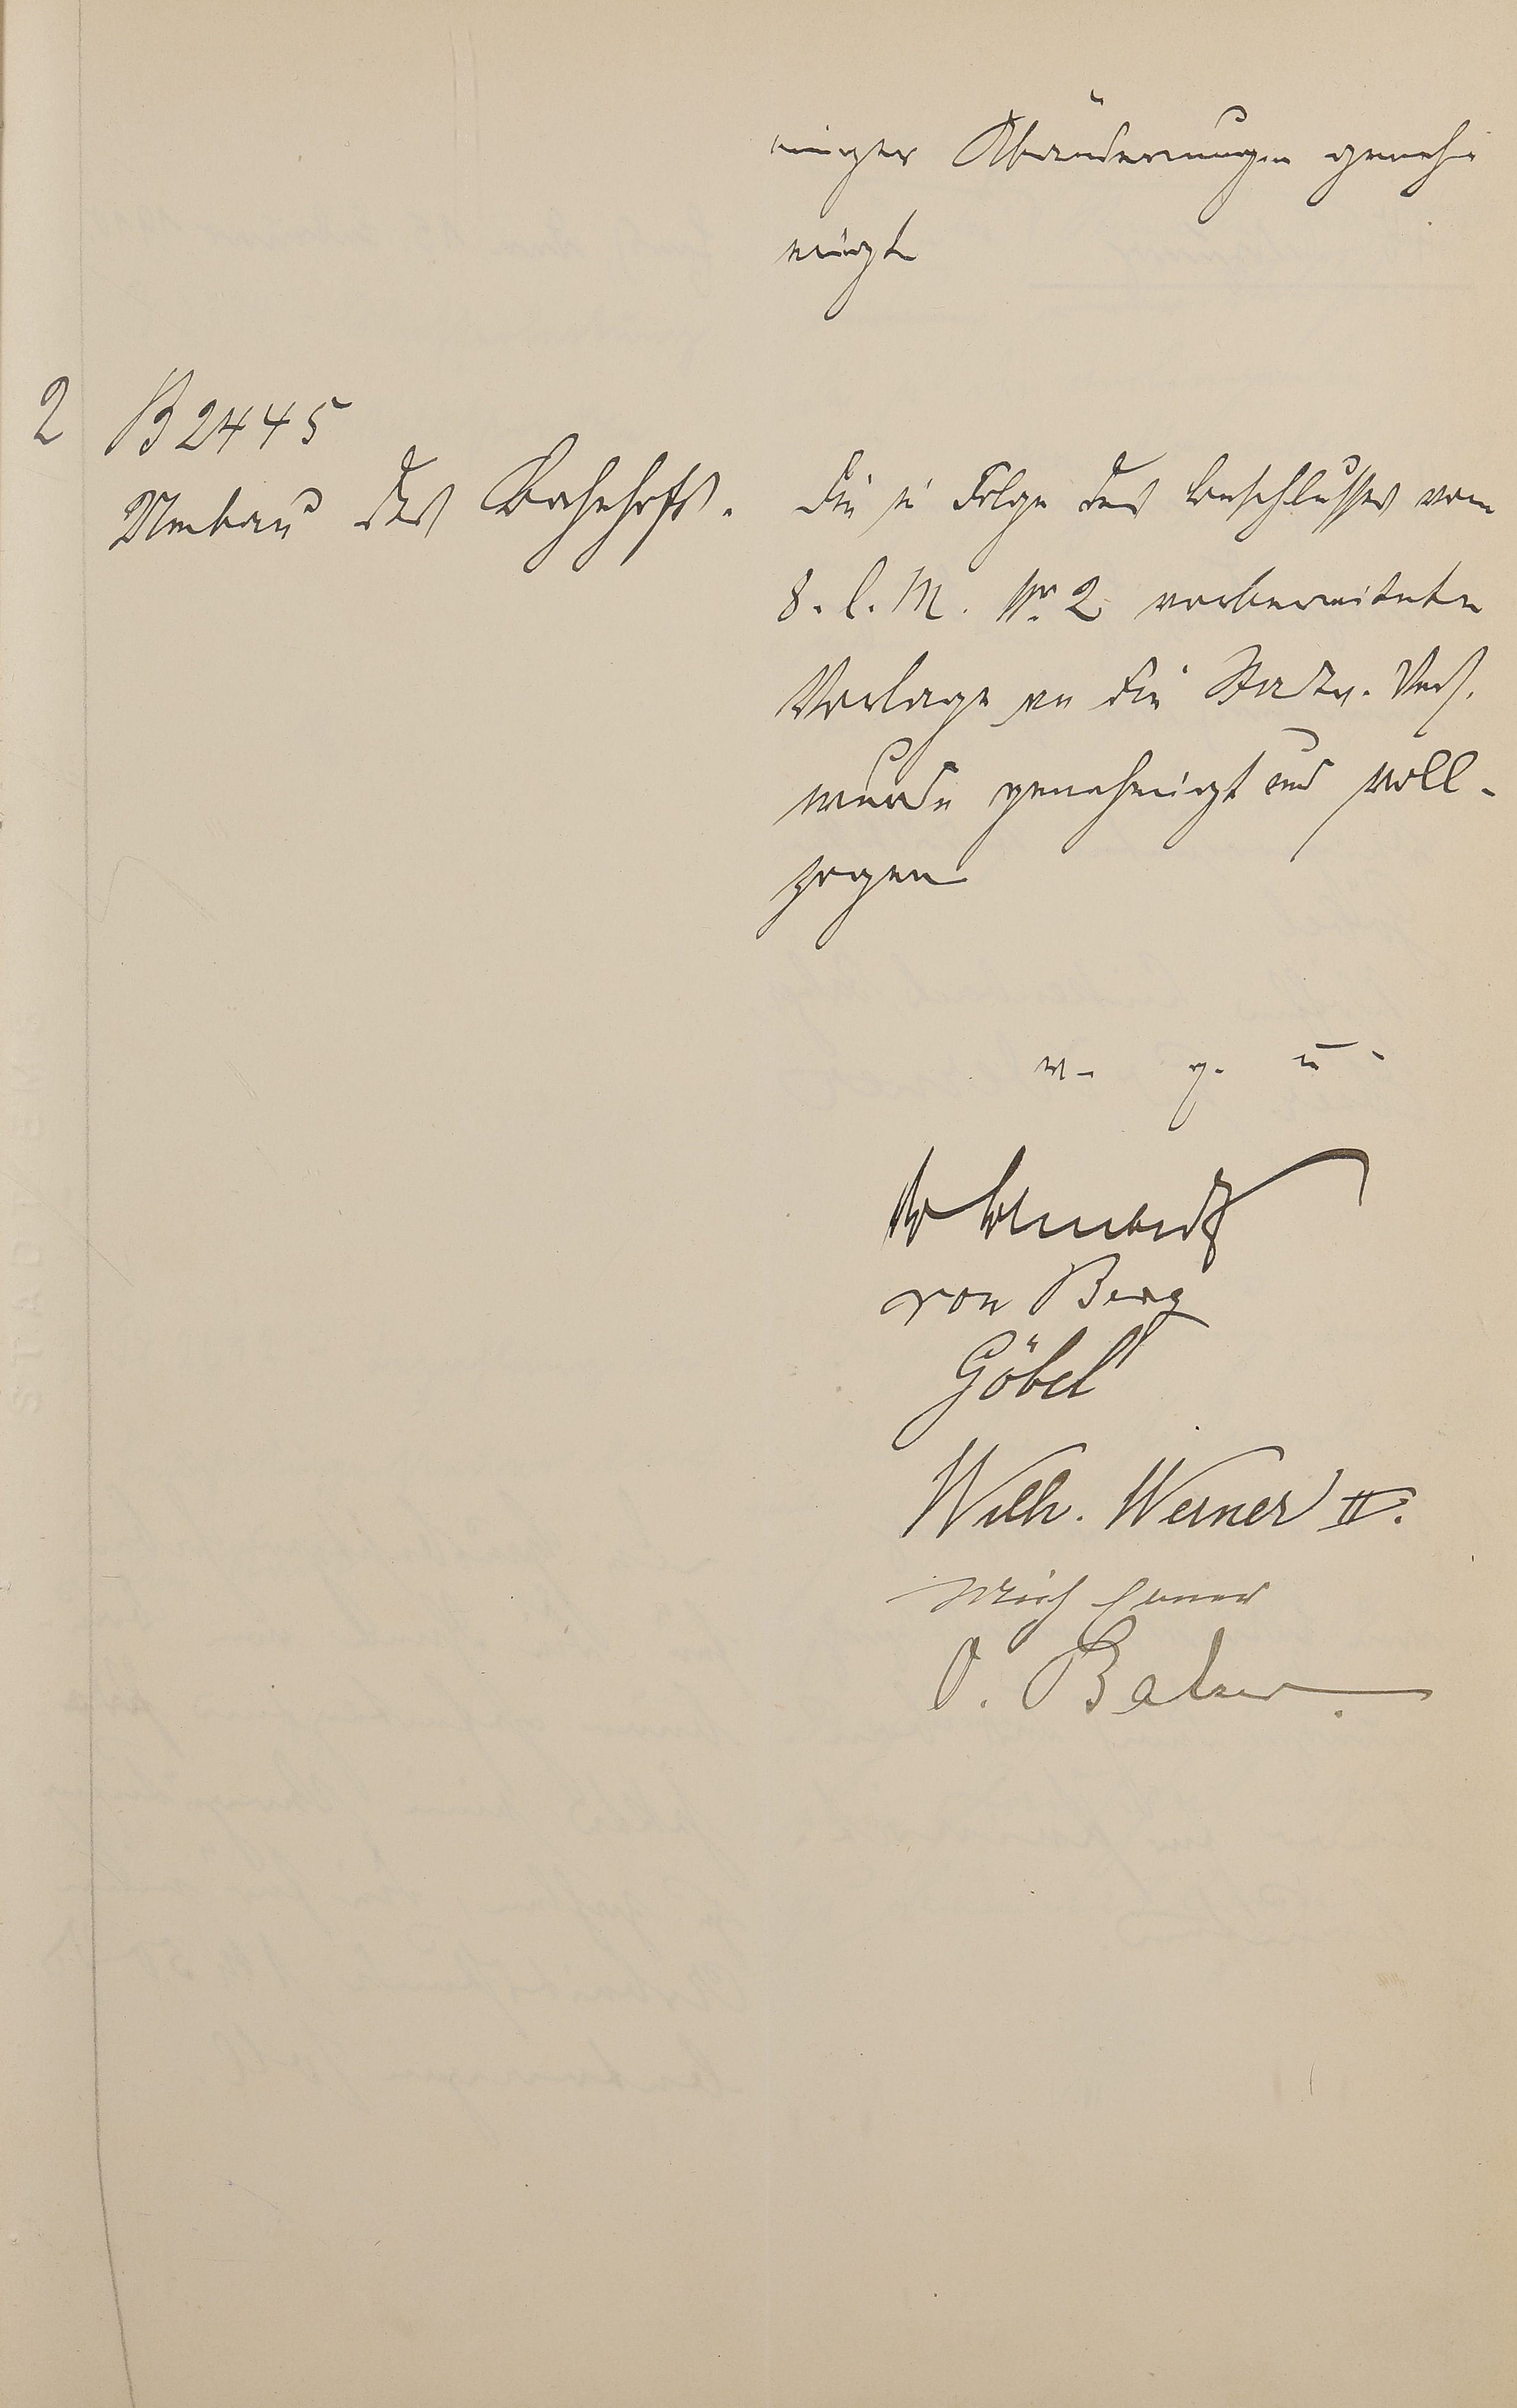 einiger Abänderungen geneh-
migt
2 B 2445
Umbau des Bahnhofs.
Die in Folge des Beschlusses vom
8. l. M. Nr. 2 vorbereitete
Vorlage an die Stadtv. Vers.
wurde genehmigt und voll-
zogen
v. g. u.
von Berg
Göbel
Wilh. Werner II.
O. Balser